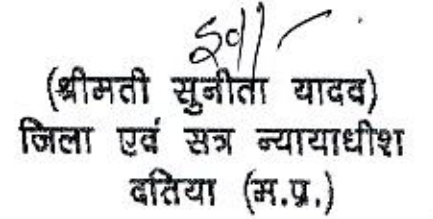 Sd/-
(श्रीमती सुनीता यादव)
जिला एवं सत्र न्यायाधीश
दतिया (म.प्र.)